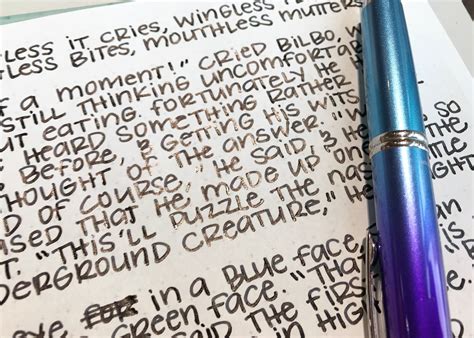 LESS IT CRIES, WINGLESS
HLESS BITES, MOUTHLESS MUTTERS
F A MOMENT!" CRIED BILBO, W
STILL THINKING UNCOMFORTAB
UT EATING. FORTUNATELY HE H
HEARD SOMETHING RATHER
BEFORE, & GETTING HIS WITS
THOUGHT OF THE ANSWER. "W SO
D OF COURSE," HE SAID, & HE
ASED THAT HE MADE UP ON TLE
T. "THIS'LL PUZZLE THE NAS
DERGROUND CREATURE," HE
EYE FOR IN A BLUE FACE, AN
GREEN FACE. "THA
SAID THE FIRS
IN HIGH